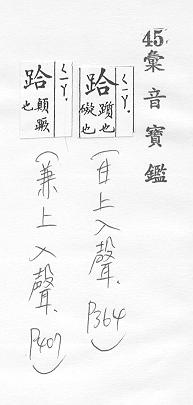 45彙音寶鑑
ㄑㄧㄚ.
跲 躓也礙也
(甘上入聲. P364)
ㄑㄧㄚ.
跲 顛蹶也
(兼上入聲. P407)